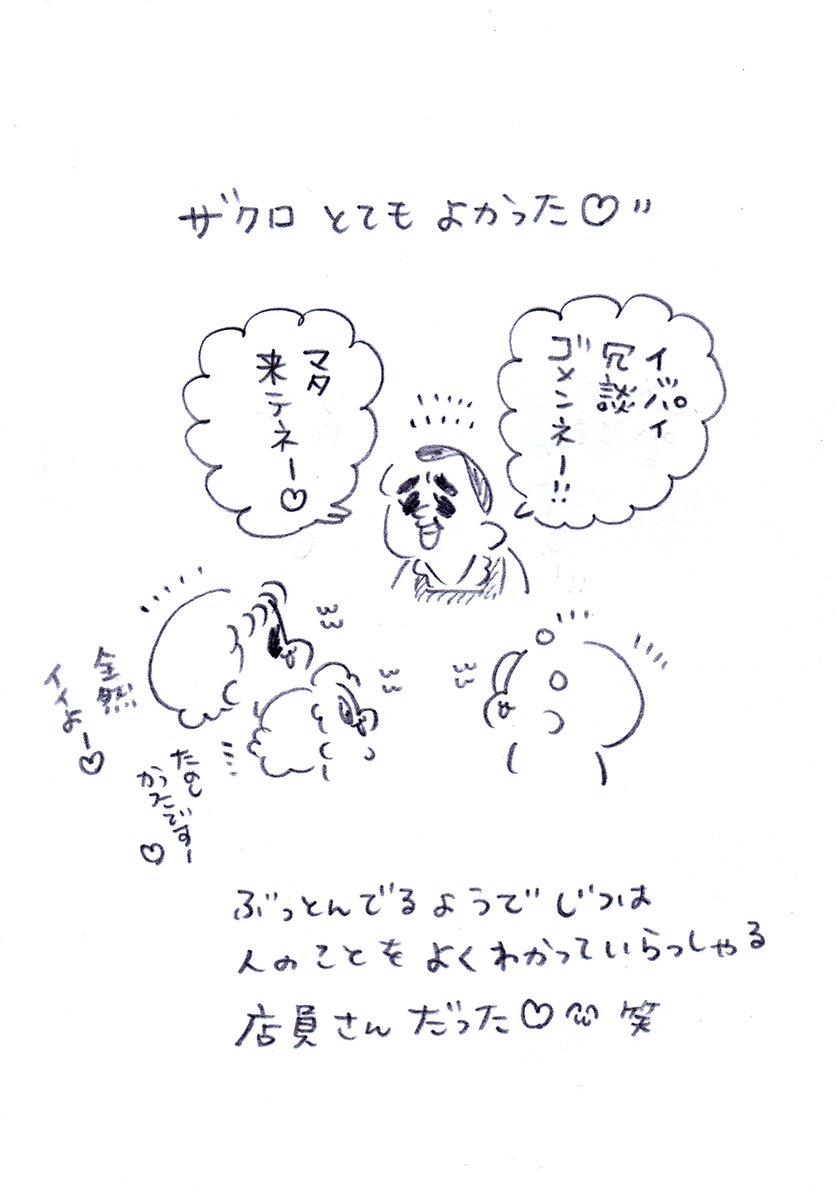 ザクロ とても よかった♡
イパイ
冗談
ゴメンネー!!
マタ
来テネー♡
全然
イイよー♡
たのし
かったですー
♡
ぶっとんでるようで じつは
人のことを よくわかっていらっしゃる
店員さん だった♡ 笑